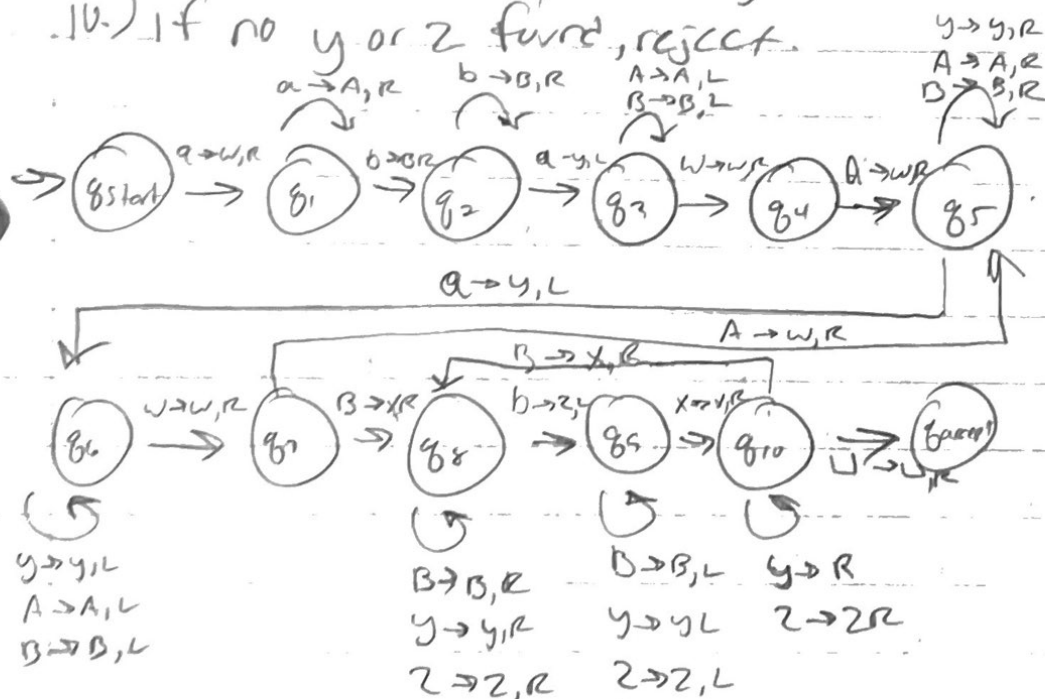 10.) If no y or z found, reject.
y→y,R
A→A,R
B→B,R
a→A,R
b→B,R
A→A,L
B→B,L
qstart
a→w,R
q1
b→BR
q2
a→y,L
q3
w→w,R
q4
→w,R
q5
a→y,L
A→w,R
B→x,R
q6
w→w,R
q7
B→xR
q8
b→z,L
q9
x→x,R
q10
⊔→⊔,R
qaccept
y→y,L
A→A,L
B→B,L
B→B,R
y→y,R
z→z,R
B→B,L
y→yL
z→z,L
y→R
z→zR